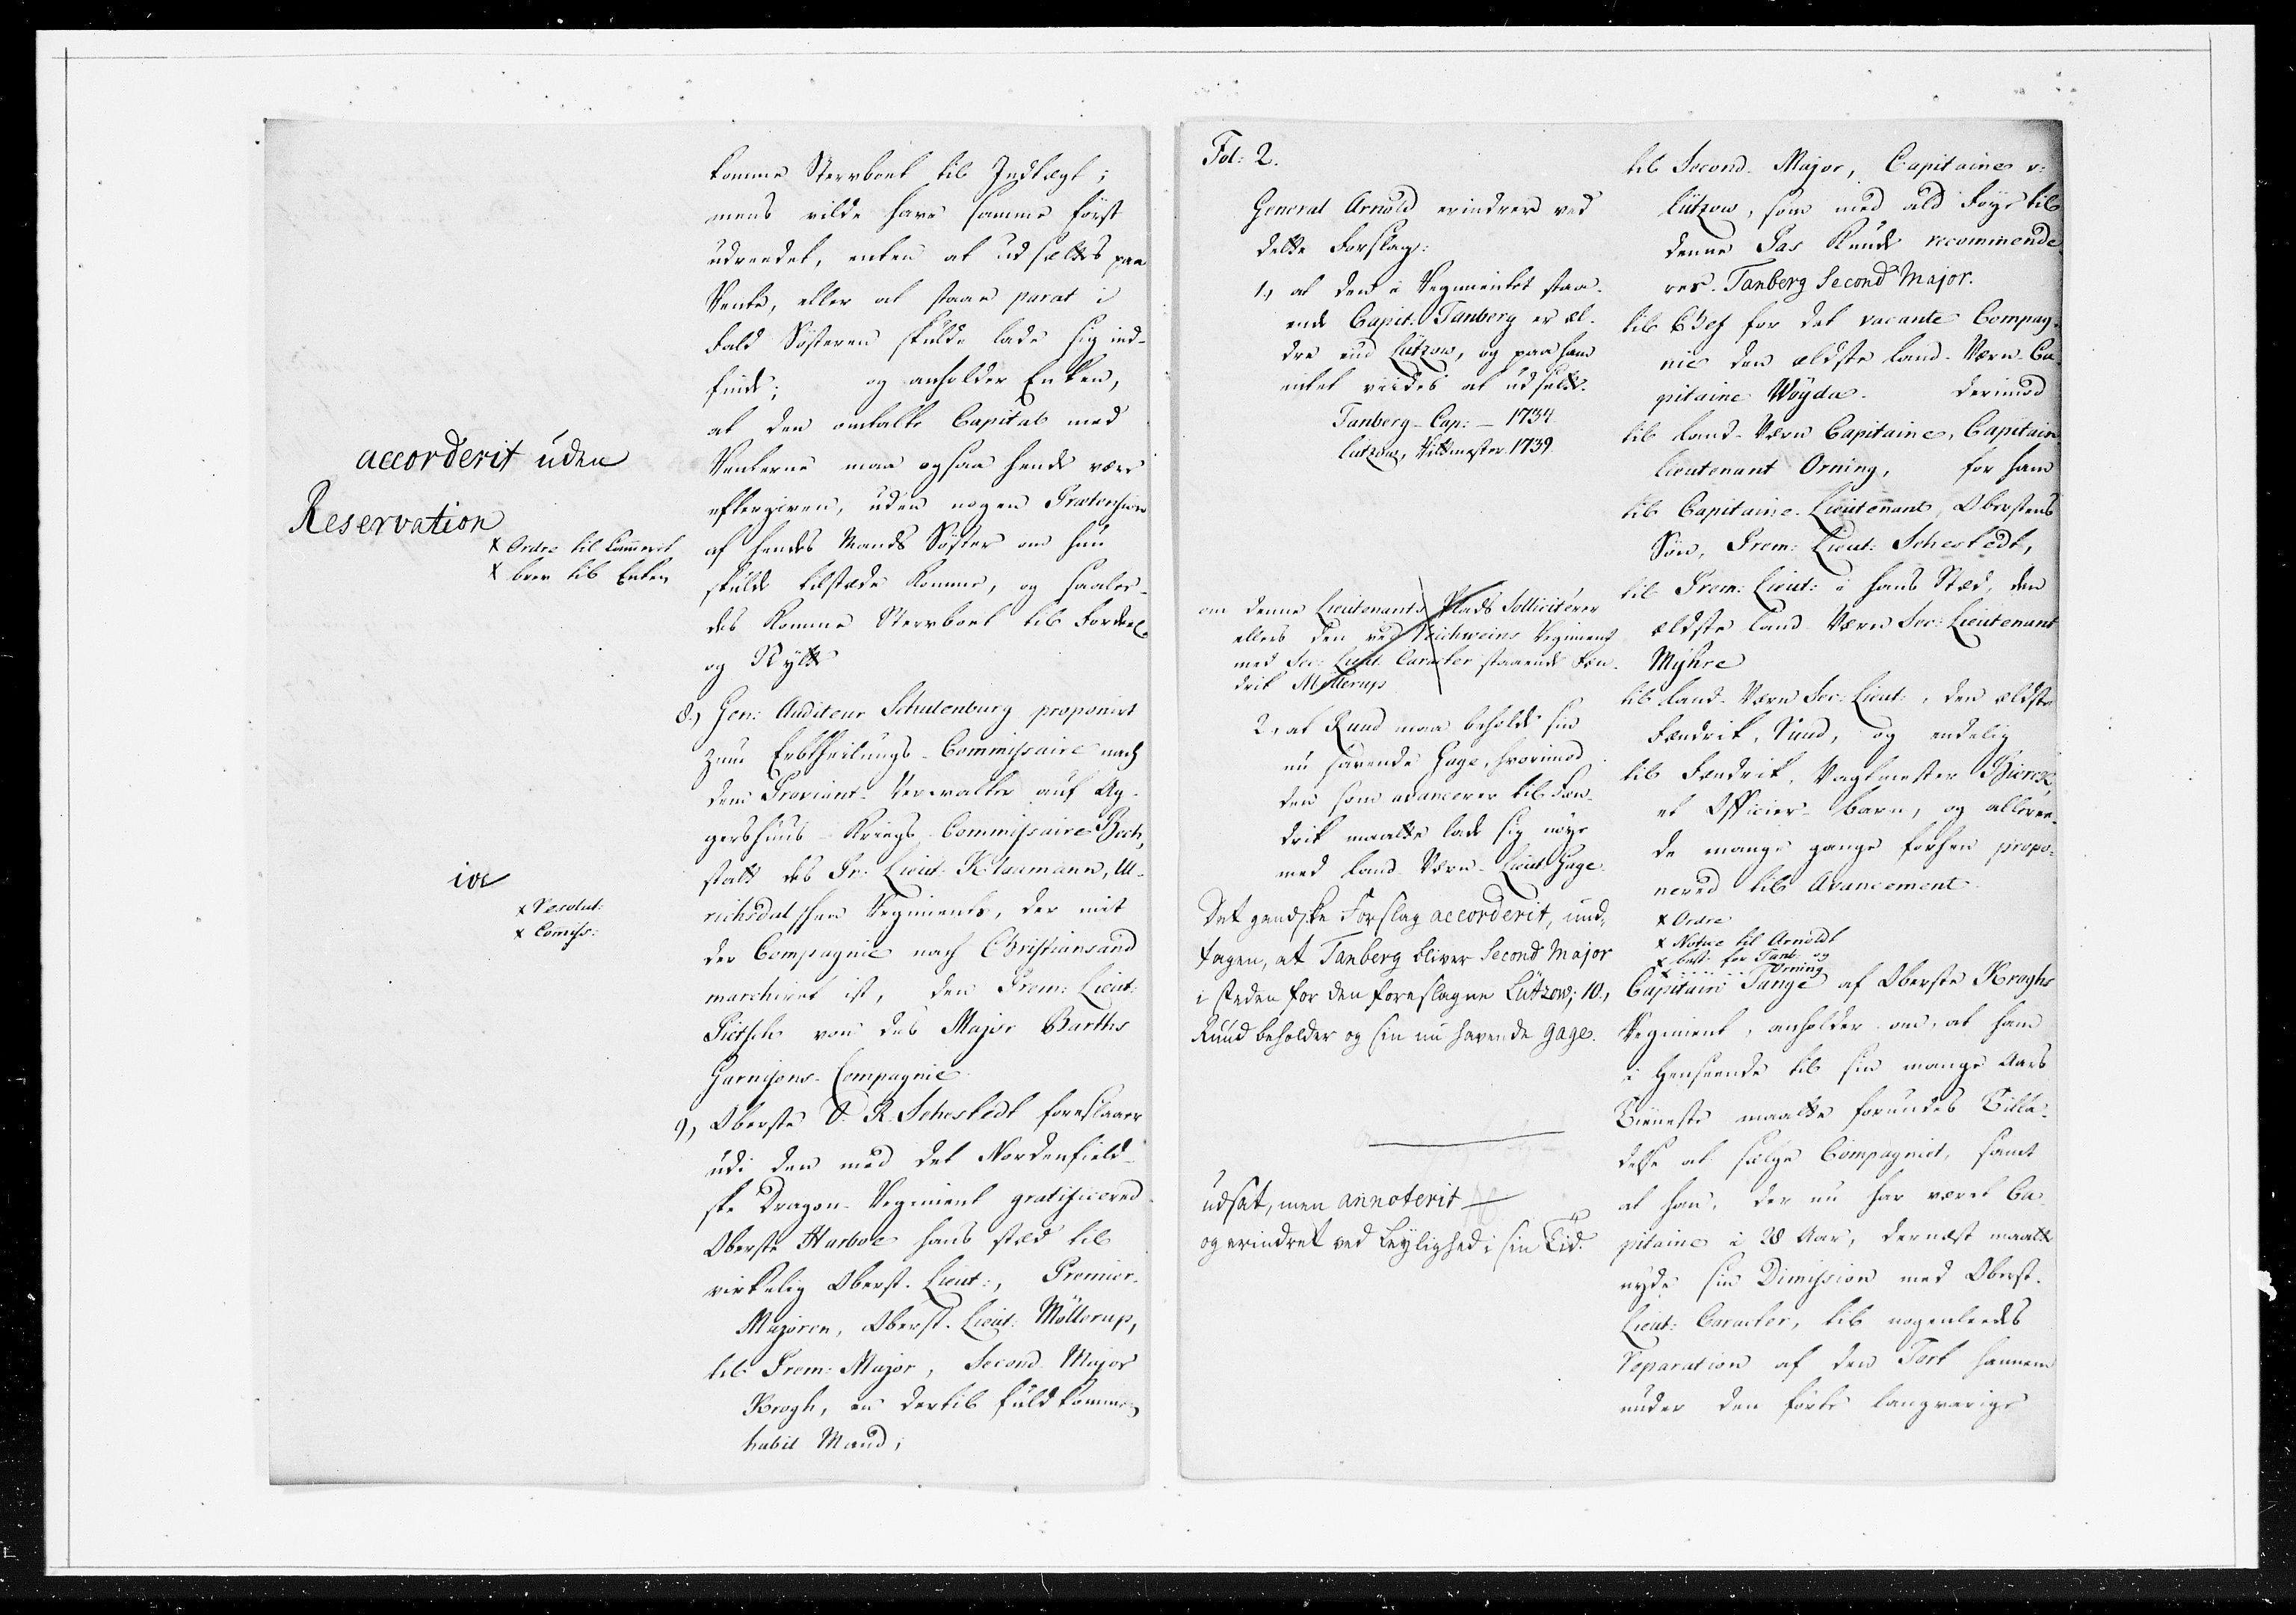 komme Sterrboet til Indtægt;
mens vilde have samme först
udreedet, enten at udsættes paa
Rente, eller at staae parat i
Fald Söstren skulde lade sig ind-
finde; og anholder Enken,
at den omtalte Capital med
Renterne maa ogsaa hende være
eftergiven, uden nogen Prætension
af hendes Mands Söster om hun
skulde tilstæde komme, og saale-
des komme Sterrboet til Fordeel
og Nytte
accorderit uden
Reservation
x Ordre til Cammerit
x brev til Enken
8.) Gen: Auditeur Schulenburg proponirt
zum Erbtheilungs-Commissaire nach
dem Proviant-Verwalter auf Ag-
gershuus Kriegs-Commissaire Bech,
statt des Pr: Lieut: Klaumann, Ul-
richsdalschen Regiments, der mit
der Compagnie nach Christiansand
marchiret ist, den Prem: Lieut:
Pietsch von des Major Barths
Garnisons-Compagnie
ia
x Resolut:
x Comiss:
9.) Oberste V. R. Schestedt foreslaaer
udi den med det Nordenfield-
ske Dragon-Regiment gratificered
Oberste Harboe hans sted til
virkelig Oberst-Lieut:, Premier-
Majoren, Oberst-Lieut: Möllerup,
til Prem: Major, Second-Major
Krogh, en dertil fuldkommen
habil Mand;
Fol: 2.
General Arnold erindrer ved
dette Forslag:
1.) at den i Regimentet staa-
ende Capit: Tanberg er æl-
dre end Lützow, og paa ham
intet viides at udsætte.
Tanberg-Cap: - 1734
Lützow, Rittmester 1739
om denne Lieutenants Plads solliciterer
ellers den ved Reichweins Regiment
med Sec: Lieut: Caracter staaende Fen-
drik Möllerup
2.) at Ruud maa beholde sin
nu havende Gage, hvorimod
den som avancerer til Fæn-
drik maatte lade sig nöye
med Land-Værn-Lieut: Gage.
Det gandske Forslag accorderit, und-
tagen, at Tanberg bliver Second Major
i steden for den foreslagne Lützow;
Ruud beholder og sin nu havende gage.
udsat, men annoterit
og erindret ved Leylighed i sin Tid.
til Second-Major, Capitaine v:
Lützow, som med all Föye til
denne Pas kunde recommende-
res. Tanberg Second Major.
til Chef for det vacante Compag-
nie den ældste Land-Værn-Ca-
pitaine Wöyda. derimod
til Land-Værn Capitaine, Capitain
Lieutenant Orning, for ham
til Capitaine-Lieutenant, Oberstens
Sön, Prem: Lieut: Schestedt,
til Prem: Lieut: i hans Sted, den
ældste Land-Værn Sec: Lieutenant
Myhre
til Land-Værn Sec: Lieut:, den ældste
Fændrik, Ruud, og endelig
til Fændrik, Vagtmester Bierck
et Officier-barn, og alleree-
de mange gange forhen propo-
nered til Avancement.
x Ordre
x Notice til Arnoldt
x best: for Tanb: og
x . . . . . . . Orning
10.) Capitain Tange af Oberste Kroghs
Regiment, anholder om, at ham
i Henseende til sin mange Aars
Tieneste maatte forundes Tilla-
delse at sælge Compagniet, samt
at han, der nu har været Ca-
pitaine i 28 Aar, dernæst maatte
nyde sin Dimission med Oberst-
Lieut: Caracter, til nogenleeds
Reparation af den Tort hannem
under den förte langvarige